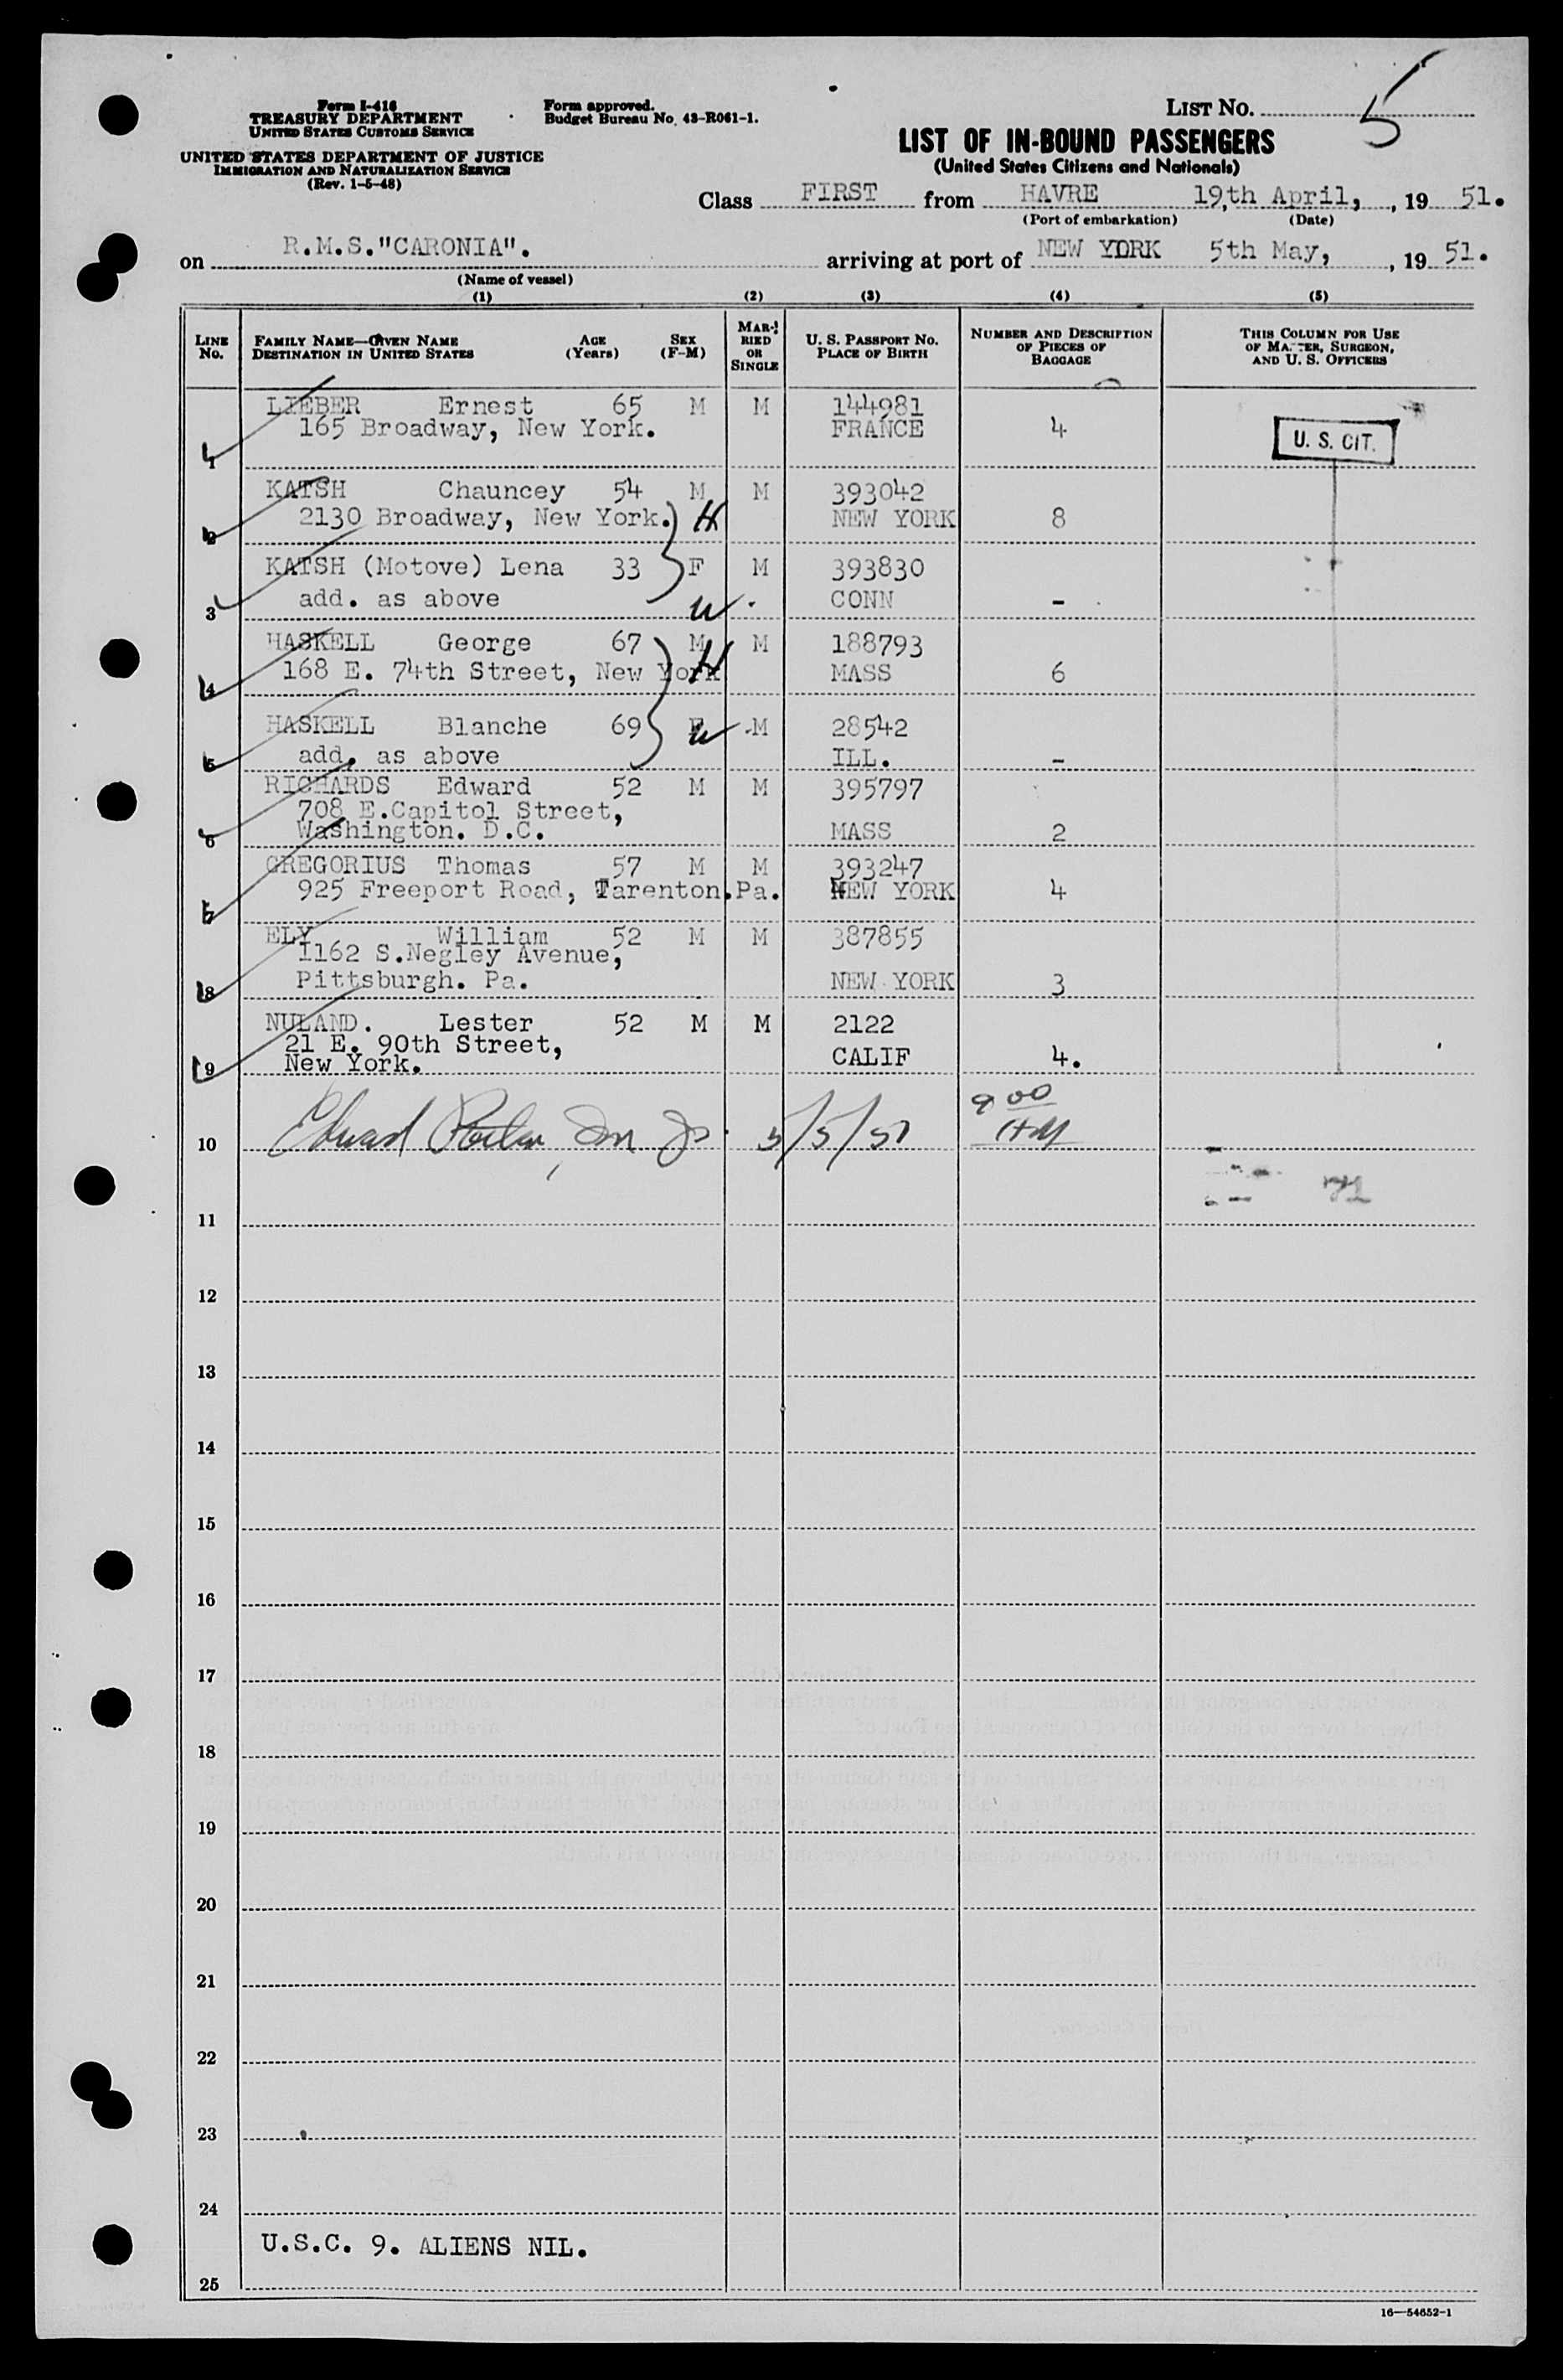 Form I-416
TREASURY DEPARTMENT
UNITED STATES CUSTOMS SERVICE
Form approved.
Budget Bureau No. 43-R061-1.
LIST NO. 5
UNITED STATES DEPARTMENT OF JUSTICE
IMMIGRATION AND NATURALIZATION SERVICE
(Rev. 1-5-48)
LIST OF IN-BOUND PASSENGERS
(United States Citizens and Nationals)
Class FIRST from HAVRE 19,th April, , 19 51.
(Port of embarkation) (Date)
on R.M.S."CARONIA". arriving at port of NEW YORK 5th May, , 19 51.
(Name of vessel)
(1) (2) (3) (4) (5)
LINE No. FAMILY NAME—GIVEN NAME DESTINATION IN UNITED STATES AGE (Years) SEX (F-M) MARRIED OR SINGLE U. S. PASSPORT NO. PLACE OF BIRTH NUMBER AND DESCRIPTION OF PIECES OF BAGGAGE THIS COLUMN FOR USE OF MASTER, SURGEON, AND U. S. OFFICERS
LIEBER Ernest 65 M M 144981
1 165 Broadway, New York. FRANCE 4 U. S. CIT.
KATSH Chauncey 54 M M 393042
2 2130 Broadway, New York. H NEW YORK 8
KATSH (Motove) Lena 33 F M 393830
3 add. as above W CONN -
HASKELL George 67 M M 188793
4 168 E. 74th Street, New York H MASS 6
HASKELL Blanche 69 F W M 28542
5 add. as above ILL. -
RICHARDS Edward 52 M M 395797
708 E.Capitol Street,
6 Washington. D.C. MASS 2
GREGORIUS Thomas 57 M M 393247
7 925 Freeport Road, Tarenton.Pa. NEW YORK 4
ELY William 52 M M 387855
1162 S.Negley Avenue,
8 Pittsburgh. Pa. NEW YORK 3
NULAND. Lester 52 M M 2122
21 E. 90th Street,
9 New York. CALIF 4.
10 Edward 5/5/51 9 00
11
12
13
14
15
16
17
18
19
20
21
22
23
24
U.S.C. 9. ALIENS NIL.
25
16—54652-1